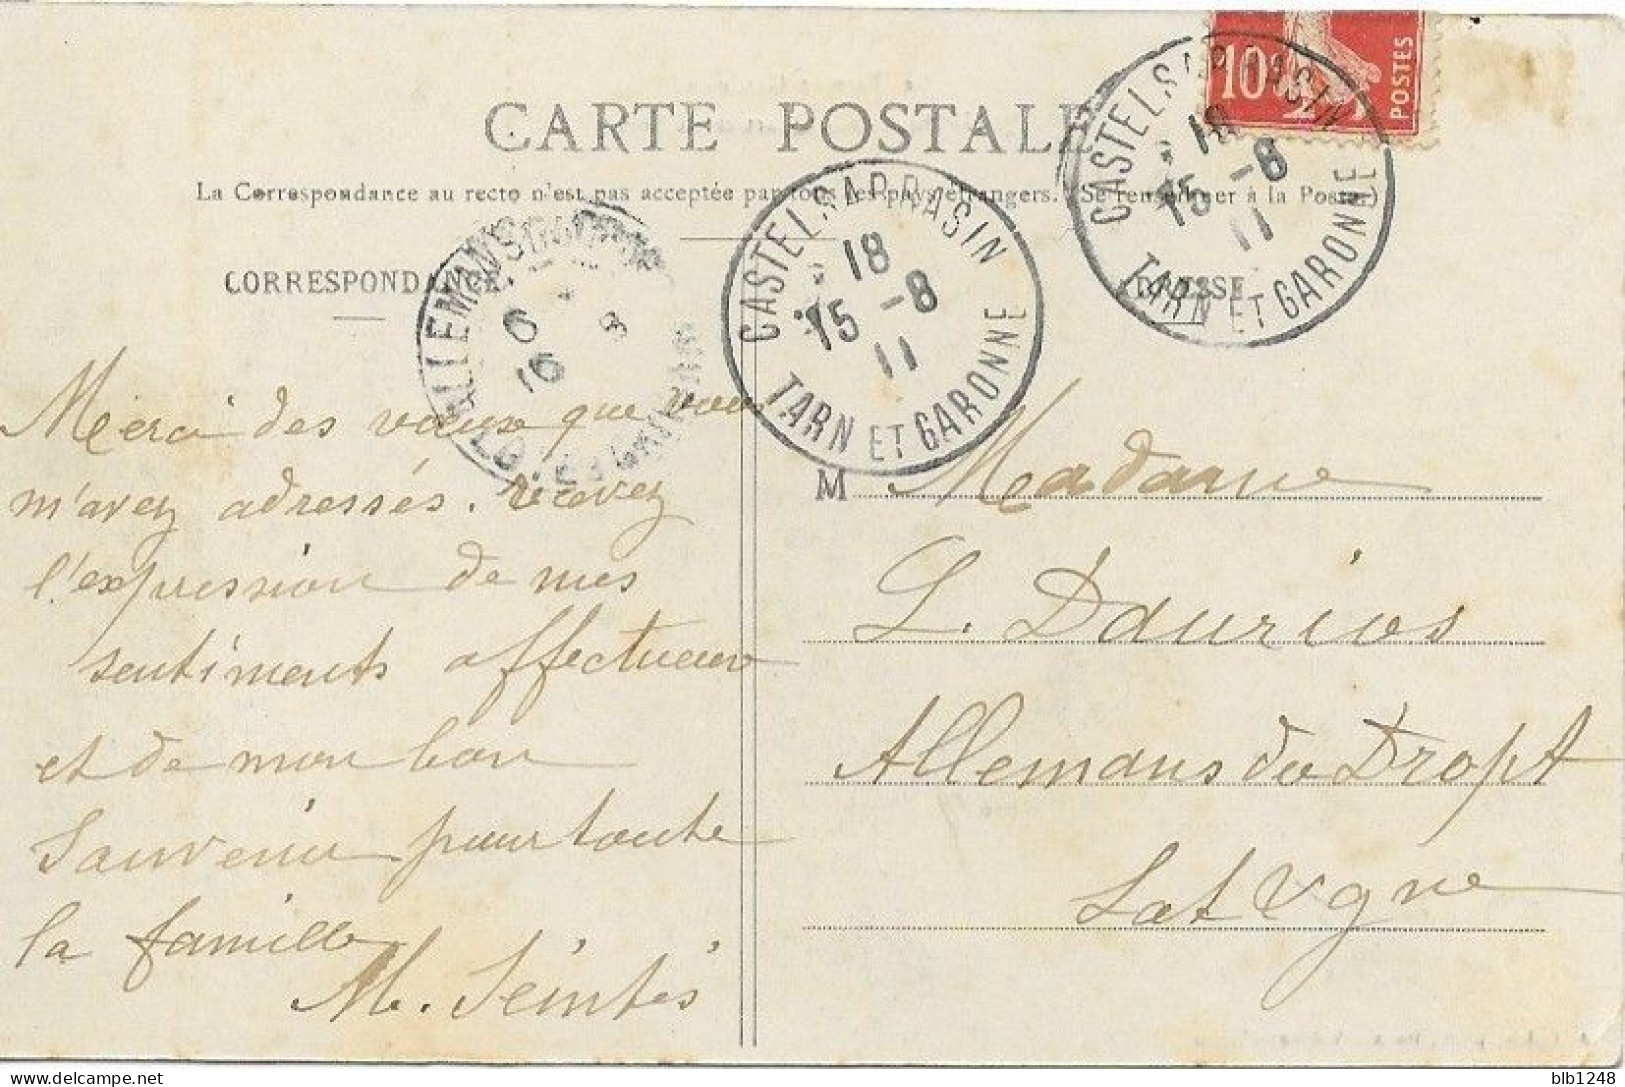 CARTE POSTALE
La Correspondance au recto n'est pas acceptée par tous les pays étrangers. (Se renseigner à la Poste)
CORRESPONDANCE
ADRESSE
10c
POSTES
CASTELSARRASIN
18
15 -8
11
TARN ET GARONNE
CASTELSARRASIN
18
15 -8
11
TARN ET GARONNE
ALLEMANS
6
16 8
LOT-ET-GARONNE
Merci des vœux que vous
m'avez adressés. recevez
l'expression de mes
sentiments affectueux
et de mon bon
Souvenir pour toute
la famille
M. Seintés
M Madame
L. Daurios
Allemans du Dropt
Lot & Gne
blb1248